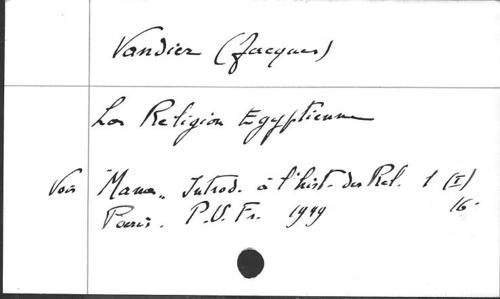 Vandier (Jacques)
La Religion Egyptienne
Voir "Mana" Introd. à l'hist. des Rel. 1 (I)
Paris. P.U.Fr. 1949 16°